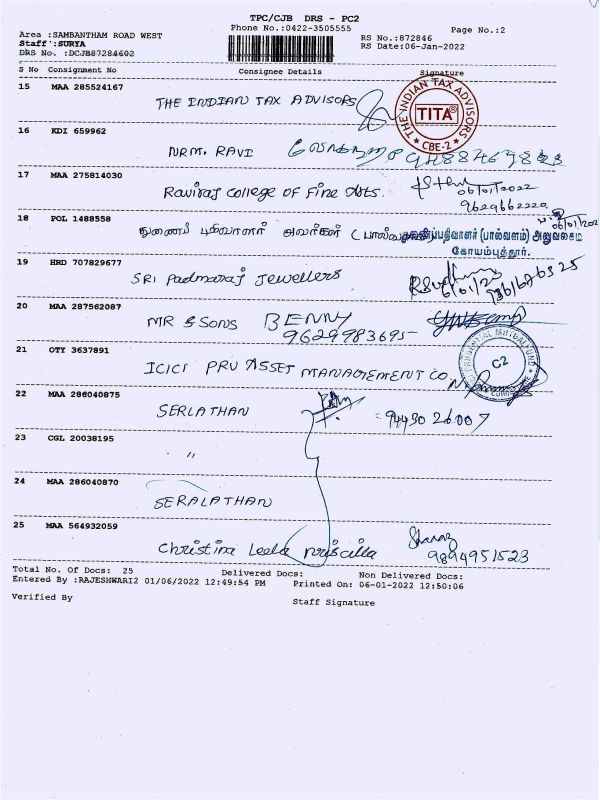 TPC/CJB DRS - PC2
Phone No.:0422-3505555
Page No.:2
Area :SAMBANTHAM ROAD WEST
Staff :SURYA
DRS No. :DCJB87284602
RS No.:872846
RS Date:06-Jan-2022
S No Consignment No Consignee Details Signature
15 MAA 285524167
THE INDIAN TAX ADVISORS
THE INDIAN TAX ADVISORS
TITA
CBE-2
16 KDI 659962
NRM. RAVI
17 MAA 275814030
Raviraj College of Fine Arts.
06/01/2022
9629662220
18 POL 1488558
துணைப் பதிவாளர் அவர்கள்
(பால்வளம்) அலுவலகம்
கோயம்புத்தூர்.
06/01/202
19 HRD 707829677
SRI Padmaraj Jewellers
20 MAA 287562087
MR & SONS BENNY
9629983695
21 OTY 3637891
ICICI PRU ASSET MANAGEMENT CO
C2
22 MAA 286040875
SERLATHAN
94430 26007
23 CGL 20038195
"
24 MAA 286040870
SERALATHAN
25 MAA 564932059
Christina Leela Priscilla
9894951523
Total No. Of Docs: 25 Delivered Docs: Non Delivered Docs:
Entered By :RAJESHWARI2 01/06/2022 12:49:54 PM Printed On: 06-01-2022 12:50:06
Verified By
Staff Signature